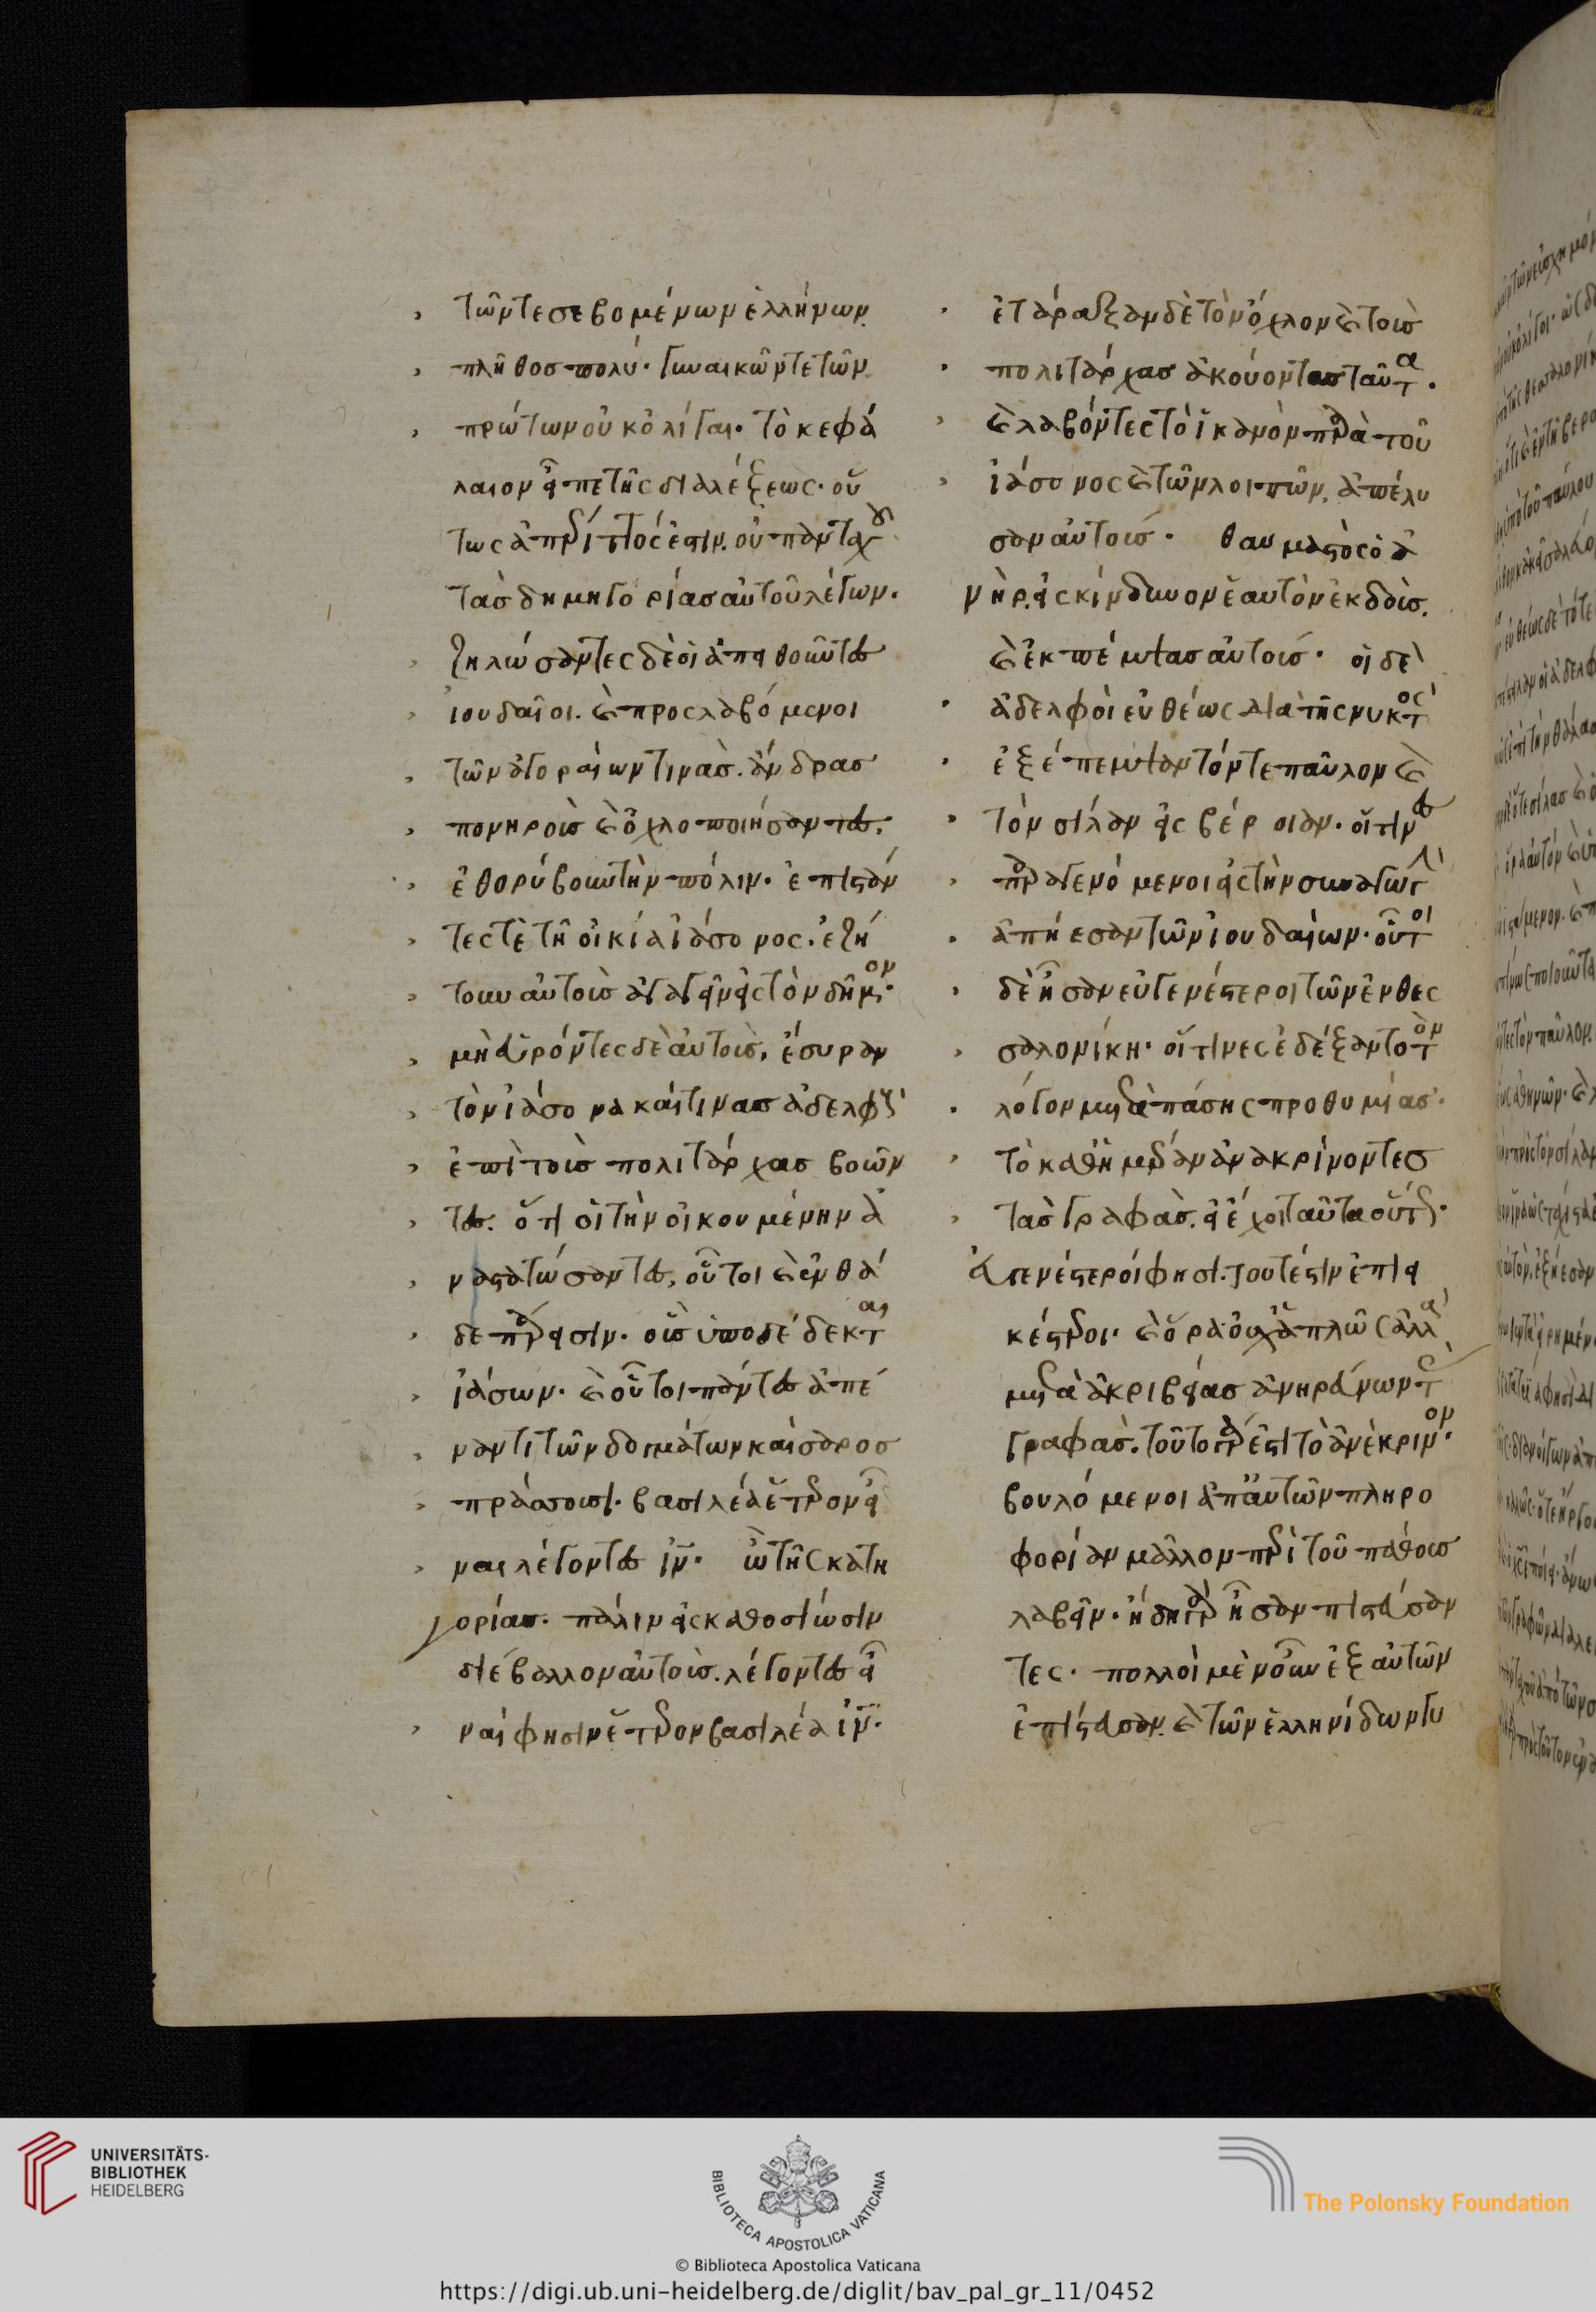 τῶν τε σεβομένων ἑλλήνων
πλῆθος πολύ· γυναικῶν τε τῶν
πρώτων οὐκ ὀλίγαι· τὸ κεφά
λαιον εἶπε τῆς διαλέξεως· οὕ
τως ἀπέριττός ἐστιν. οὐ πανταχοῦ
τὰς δημηγορίας αὐτοῦ λέγων.
ζηλώσαντες δὲ οἱ ἀπειθοῦντες
ἰουδαῖοι. καὶ προσλαβόμενοι
τῶν ἀγοραίων τινὰς. ἄνδρας
πονηροὺς καὶ ὀχλοποιήσαντες.
ἐθορύβουν τὴν πόλιν· ἐπιστάν
τες τὲ τῆ οἰκία ἰάσονος. ἐζή
τουν αὐτοὺς ἀγαγεῖν εἰς τὸν δῆμον·
μὴ εὑρόντες δὲ αὐτοὺς, ἔσυραν
τὸν ἰάσονα καί τινας ἀδελφοὺς
ἐπὶ τοὺς πολιτάρχας βοῶν
τες. ὅτι οἱ τὴν οἰκουμένην ἀ
ναστατώσαντες, οὗτοι καὶ ἐνθά
δε πάρεισιν. οὓς ὑποδέδεκται
ἰάσων. καὶ οὗτοι πάντες ἀπέ
ναντι τῶν δογμάτων καίσαρος
πράσσουσι. βασιλέα ἕτερον εἶ
ναι λέγοντες ἰν̅. ὢ τῆς κατη
γορίας. πάλιν εἰς καθοσίωσιν
διέβαλλον αὐτοὺς. λέγοντες εἶ
ναί φησιν ἕτερον βασιλέα ἰν̅.
ἐτάραξαν δὲ τὸν ὄχλον καὶ τοὺς
πολιτάρχας ἀκούοντας ταῦτα.
καὶ λαβόντες τὸ ἱκανὸν παρὰ τοῦ
ἰάσονος καὶ τῶν λοιπῶν, ἀπέλυ
σαν αὐτούς. θαυμαστὸς ὁ ἀ
νὴρ. εἰς κίνδυνον ἑαυτὸν ἐκδοὺς.
καὶ ἐκπέμψας αὐτούς. οἱ δὲ
ἀδελφοὶ εὐθέως διὰ τῆς νυκτὸς
ἐξέπεμψαν τόν τε παῦλον καὶ
τὸν σίλαν εἰς βέροιαν. οἵτινες
παραγενόμενοι εἰς τὴν συναγωγὴν
ἀπήεσαν τῶν ἰουδαίων. οὗτοι
δὲ ἦσαν εὐγενέστεροι τῶν ἐν θεσ
σαλονίκη. οἵτινες ἐδέξαντο τὸν
λόγον μετὰ πάσης προθυμίας.
τὸ καθ' ἡμέραν ἀνακρίνοντες
τὰς γραφὰς. εἰ ἔχοι ταῦτα οὕτως.
εὐγενέστεροί φησι. τουτέστιν ἐπιει
κέστεροι. καὶ ὅρα οὐχ ἁπλῶς ἀλλὰ
μετὰ ἀκριβείας ἀνηρεύνων τὰς
γραφὰς. τοῦτο γάρ ἐστι τὸ ἀνέκρινον.
βουλόμενοι ἀπ' αὐτῶν πληρο
φορίαν μᾶλλον περὶ τοῦ πάθους
λαβεῖν. ἤδη γὰρ ἦσαν πιστεύσαν
τες. πολλοὶ μὲν οὖν ἐξ αὐτῶν
ἐπίστευσαν. καὶ τῶν ἑλληνίδων γυ
UNIVERSITÄTS-
BIBLIOTHEK
HEIDELBERG
BIBLIOTECA APOSTOLICA VATICANA
The Polonsky Foundation
© Biblioteca Apostolica Vaticana
https://digi.ub.uni-heidelberg.de/diglit/bav_pal_gr_11/0452